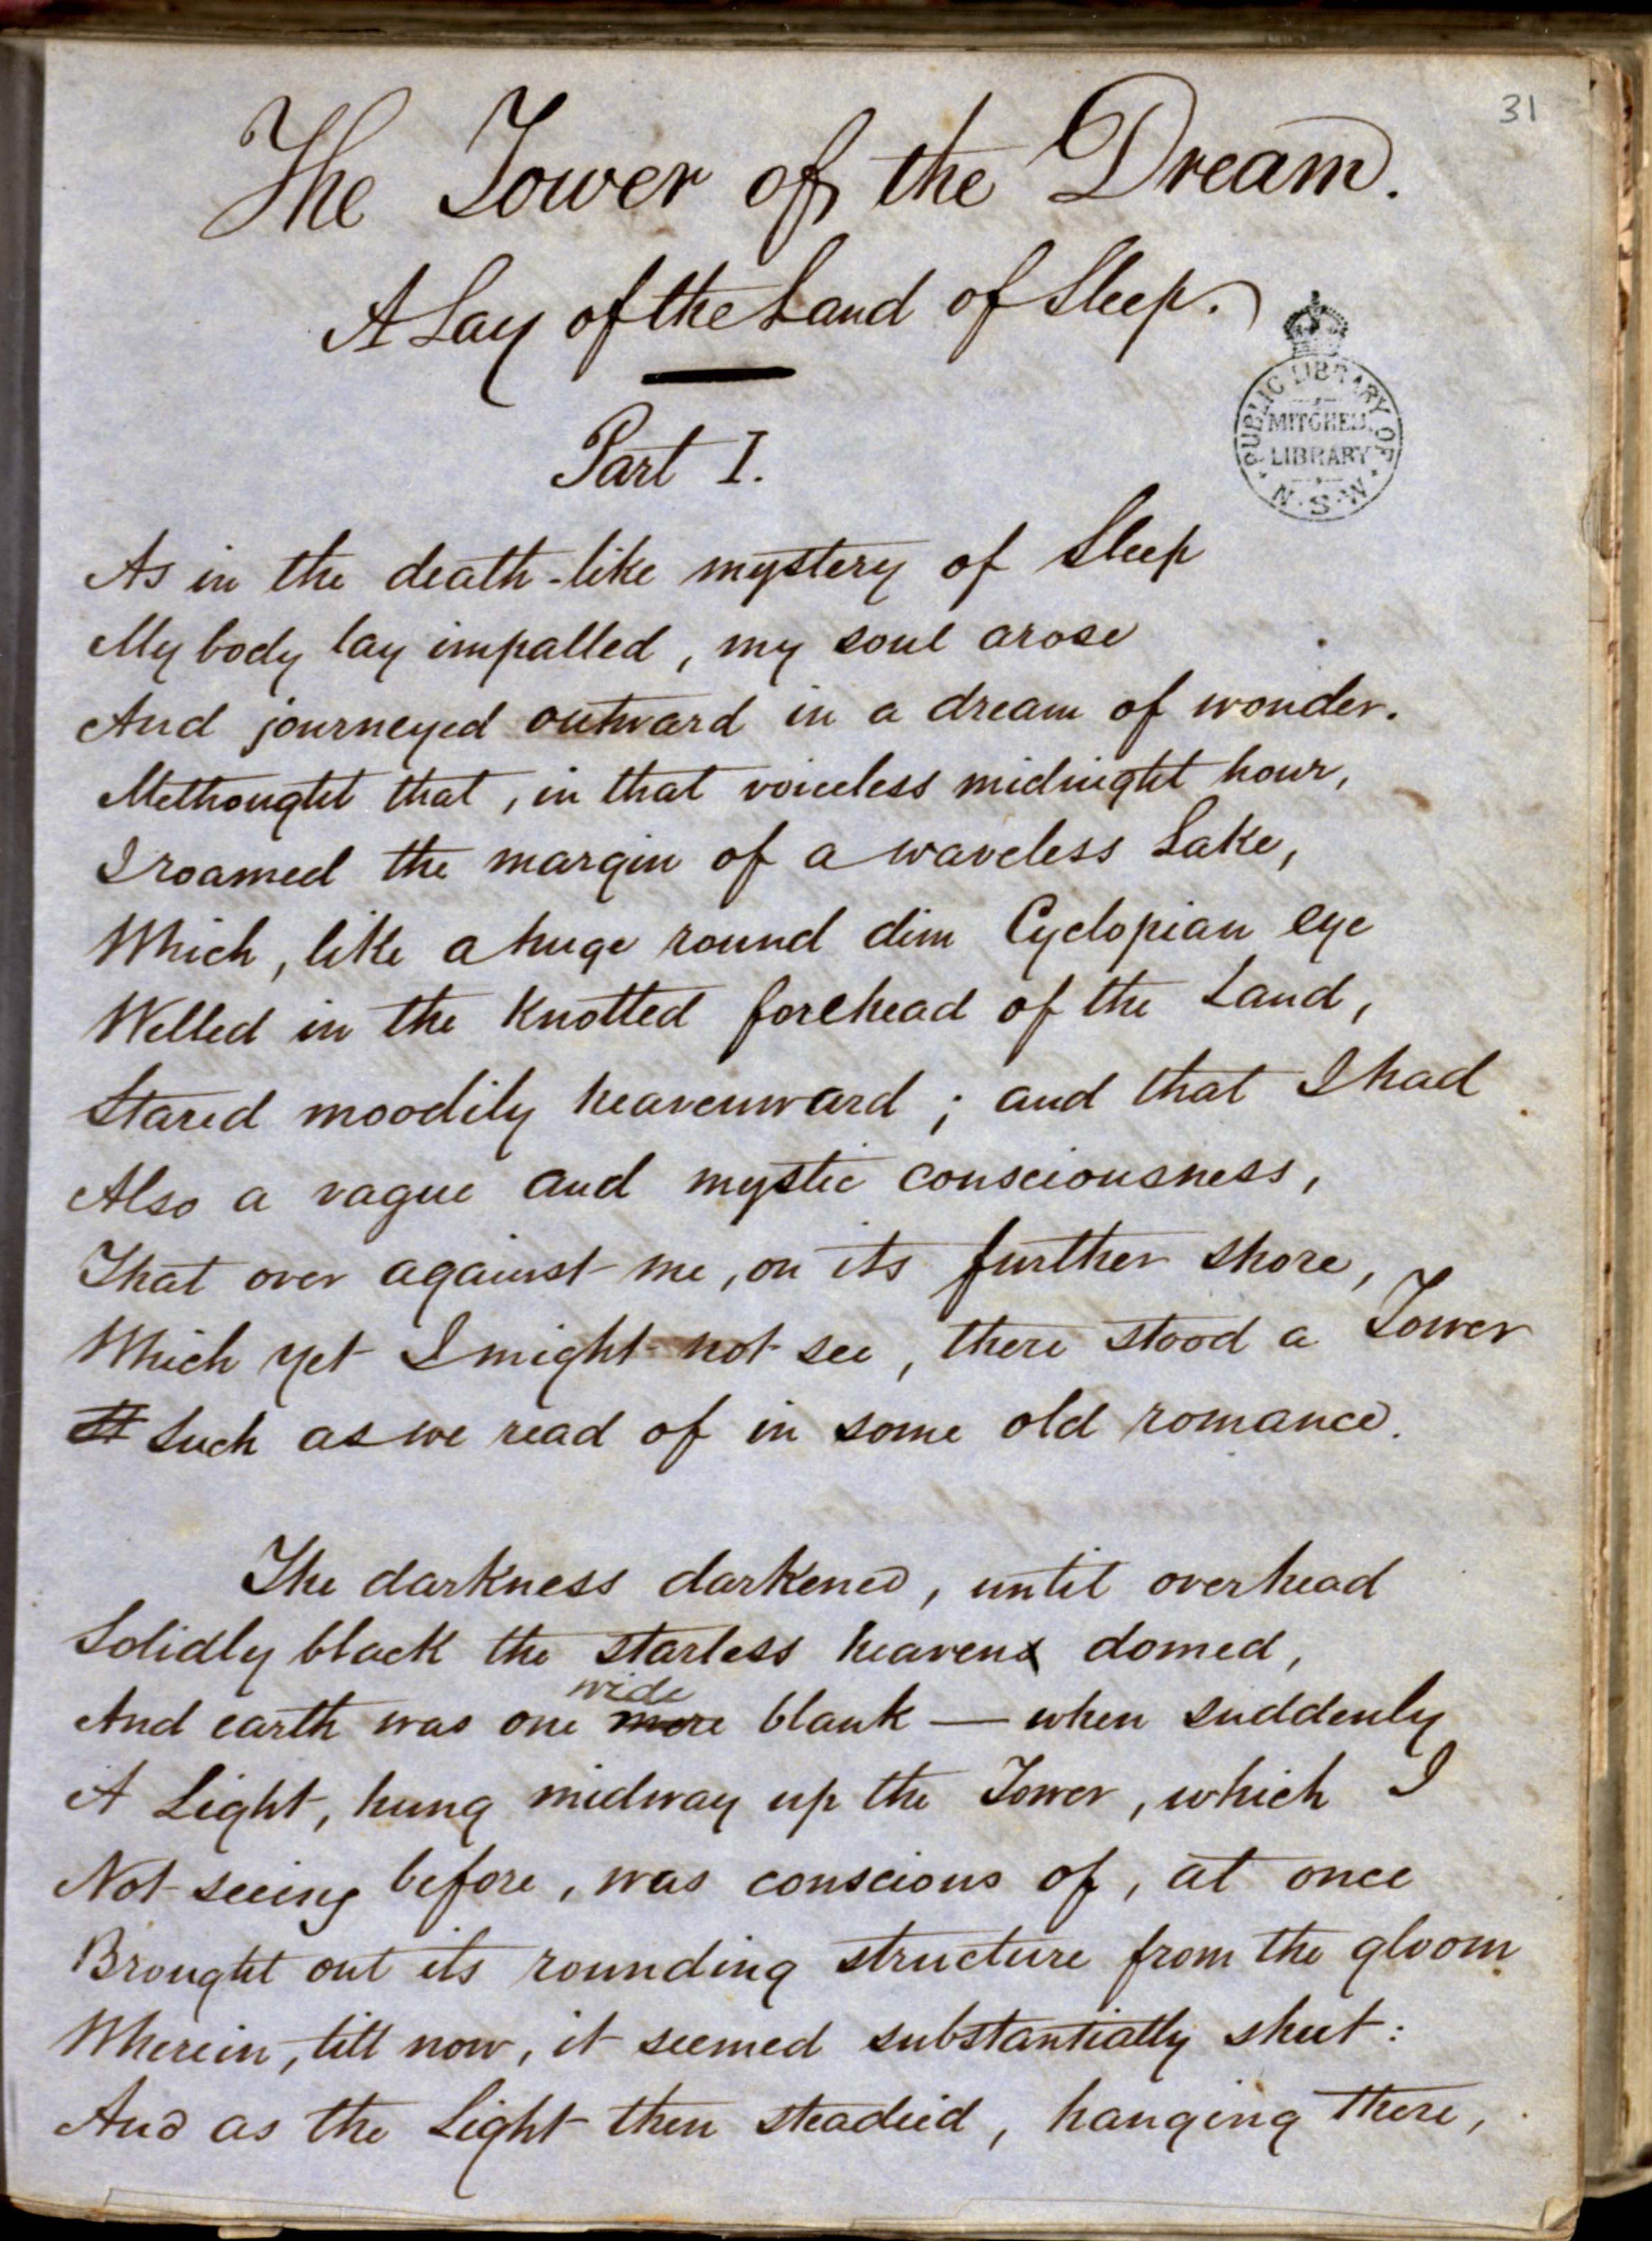 31
The Tower of the Dream.
A Lay of the Land of Sleep.
PUBLIC LIBRARY OF
MITCHELL
LIBRARY
N.S.W
Part I.
As in the death-like mystery of Sleep
My body lay impalled, my soul arose
And journeyed outward in a dream of wonder.
Methought that, in that voiceless midnight hour,
I roamed the margin of a waveless Lake,
Which, like a huge round dim Cyclopian eye
Welled in the knotted forehead of the Land,
Stared moodily heavenward; and that I had
Also a vague and mystic consciousness,
That over against me, on its further shore,
Which yet I might not see, there stood a Tower
Such as we read of in some old romance.
The darkness darkened, until overhead
Solidly black the starless heaven domed,
wide
And earth was one mere blank — when suddenly
A Light, hung midway up the Tower, which I
Not seeing before, was conscious of, at once
Brought out its rounding structure from the gloom
Wherein, till now, it seemed substantially shut:
And as the Light then steadied, hanging there,